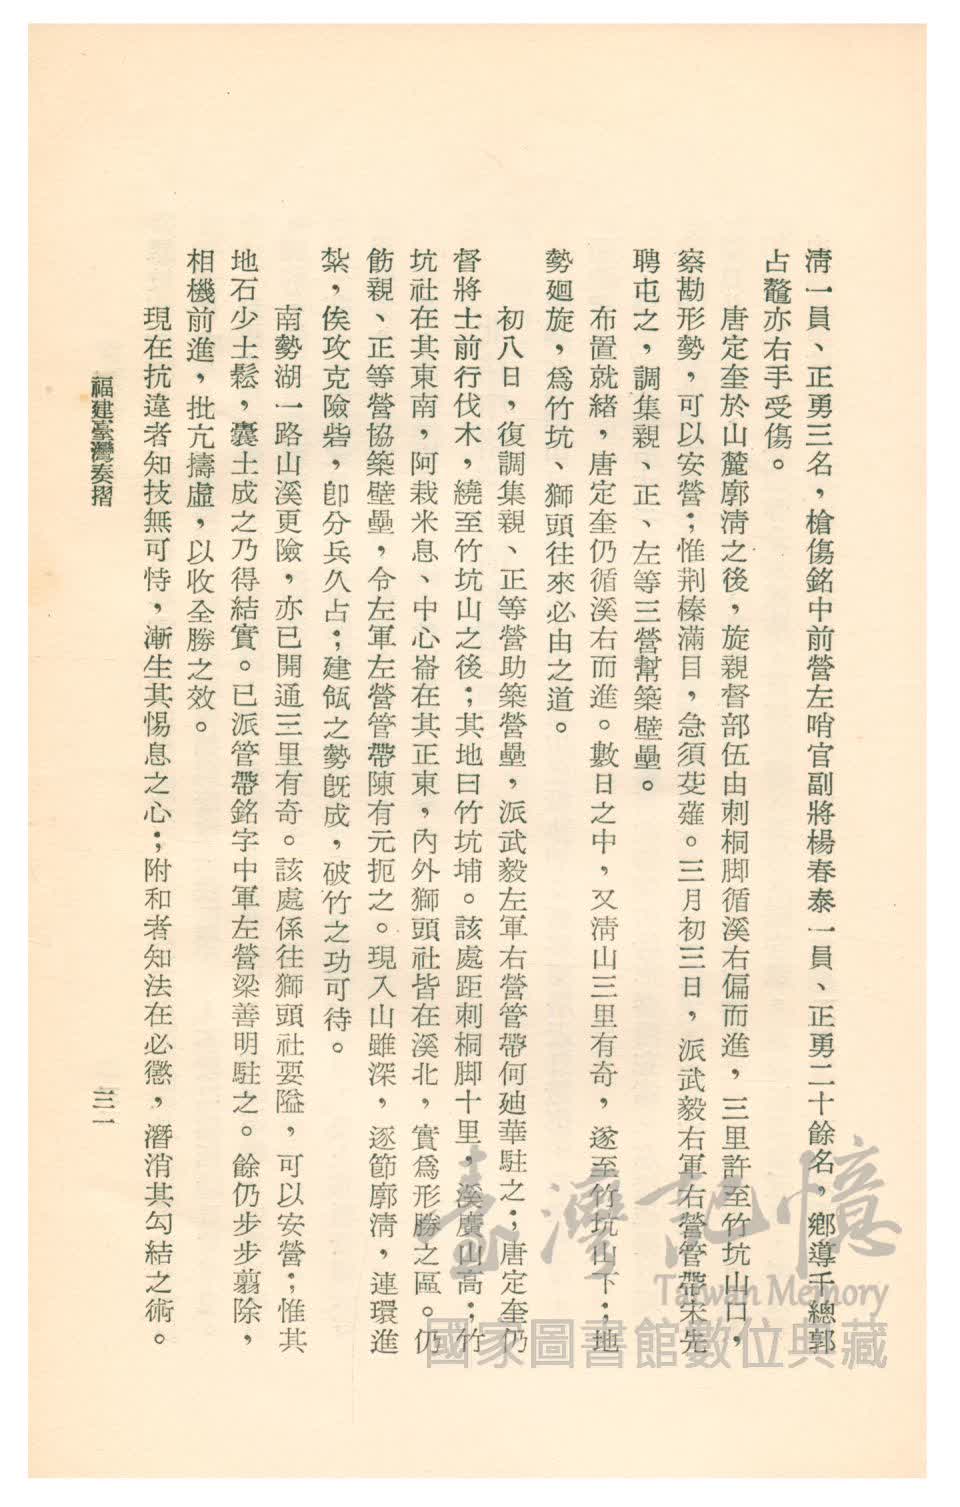 清一員、正勇三名，槍傷銘中前營左哨官副將楊春泰一員、正勇二十餘名，鄉導千總郭
占鼇亦右手受傷。
唐定奎於山麓廓清之後，旋親督部伍由刺桐脚循溪右偏而進，三里許至竹坑山口，
察勘形勢，可以安營；惟荆榛滿目，急須芟薙。三月初三日，派武毅右軍右營管帶宋先
聘屯之，調集親、正、左等三營幫築壁壘。
布置就緒，唐定奎仍循溪右而進。數日之中，又清山三里有奇，遂至竹坑山下；地
勢廻旋，爲竹坑、獅頭往來必由之道。
初八日，復調集親、正等營助築營壘，派武毅左軍右營管帶何廸華駐之；唐定奎仍
督將士前行伐木，繞至竹坑山之後；其地曰竹坑埔。該處距刺桐脚十里，溪廣山高；竹
坑社在其東南，阿栽米息、中心崙在其正東，內外獅頭社皆在溪北，實爲形勝之區。仍
飭親、正等營協築壁壘，令左軍左營管帶陳有元扼之。現入山雖深，逐節廓清，連環進
紮，俟攻克險砦，卽分兵久占；建瓴之勢旣成，破竹之功可待。
南勢湖一路山溪更險，亦已開通三里有奇。該處係往獅頭社要隘，可以安營；惟其
地石少土鬆，囊土成之乃得結實。已派管帶銘字中軍左營梁善明駐之。餘仍步步翦除，
相機前進，批亢擣虛，以收全勝之效。
現在抗違者知技無可恃，漸生其惕息之心；附和者知法在必懲，潛消其勾結之術。
福建臺灣奏摺
三一
臺灣記憶
Taiwan Memory
國家圖書館數位典藏